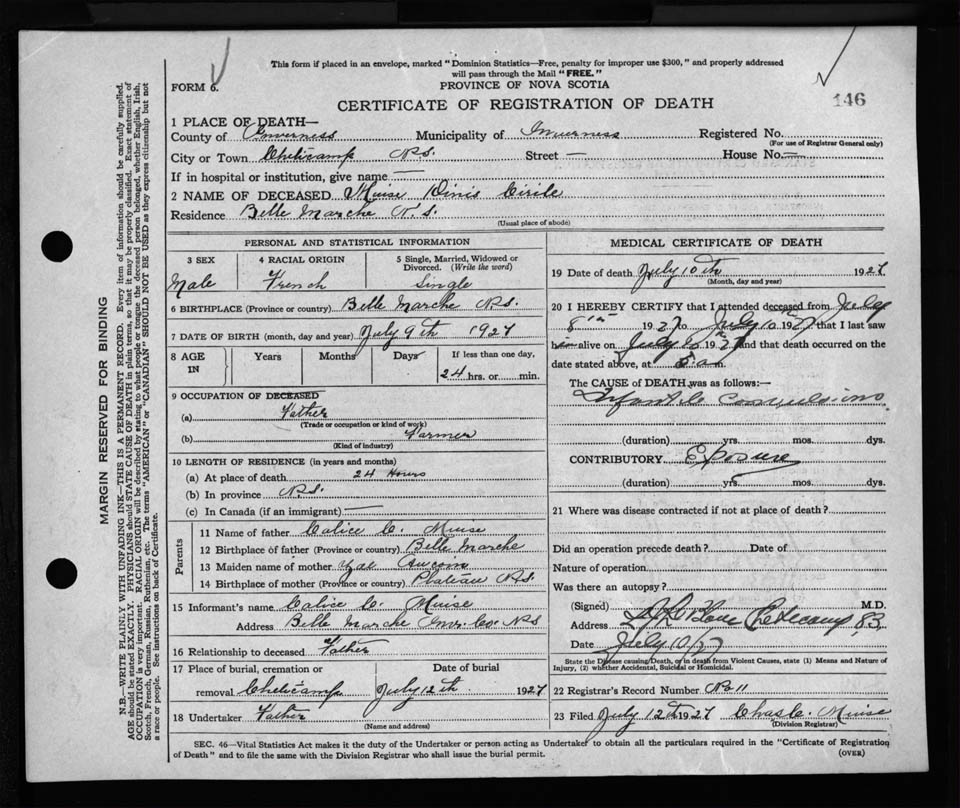 This form if placed in an envelope, marked "Dominion Statistics—Free, penalty for improper use $300," and properly addressed
will pass through the Mail "FREE."
FORM 6.
PROVINCE OF NOVA SCOTIA
CERTIFICATE OF REGISTRATION OF DEATH
146
1 PLACE OF DEATH—
County of Inverness Municipality of Inverness Registered No.
(For use of Registrar General only)
City or Town Cheticamp N.S. Street — House No. —
If in hospital or institution, give name —
2 NAME OF DECEASED Muise Dinis Cirile
Residence Belle Marche N.S.
(Usual place of abode)
PERSONAL AND STATISTICAL INFORMATION
3 SEX 4 RACIAL ORIGIN 5 Single, Married, Widowed or Divorced. (Write the word)
Male French Single
6 BIRTHPLACE (Province or country) Belle Marche N.S.
7 DATE OF BIRTH (month, day and year) July 9th 1927
8 AGE IN Years Months Days If less than one day,
24 hrs. or min.
9 OCCUPATION OF DECEASED
(a) Father
(Trade or occupation or kind of work)
(b) Farmer
(Kind of industry)
10 LENGTH OF RESIDENCE (in years and months)
(a) At place of death 24 Hours
(b) In province N.S.
(c) In Canada (if an immigrant) —
Parents
11 Name of father Calice C. Muise
12 Birthplace of father (Province or country) Belle Marche
13 Maiden name of mother Aucoin
14 Birthplace of mother (Province or country) Plateau N.S.
15 Informant's name Calice C. Muise
Address Belle Marche Inv. Co. N.S
16 Relationship to deceased Father
17 Place of burial, cremation or Date of burial
removal Cheticamp July 12th 1927
18 Undertaker Father
(Name and address)
MEDICAL CERTIFICATE OF DEATH
19 Date of death July 10th 1927
(Month, day and year)
20 I HEREBY CERTIFY that I attended deceased from July
8th 1927 to July 10 1927 that I last saw
him alive on July 10 1927 and that death occurred on the
date stated above, at 5 a m.
The CAUSE of DEATH was as follows:—
Infantile Convulsions
(duration) yrs. mos. dys.
CONTRIBUTORY Exposure
(duration) yrs. mos. dys.
21 Where was disease contracted if not at place of death?
Did an operation precede death? Date of
Nature of operation
Was there an autopsy?
(Signed) M.D.
Address Cheticamp
Date July 10/27
State the Disease causing Death, or in death from Violent Causes, state (1) Means and Nature of
Injury, (2) whether Accidental, Suicidal or Homicidal.
22 Registrar's Record Number No 11
23 Filed July 12th 1927 Chas C. Muise
(Division Registrar)
SEC. 46—Vital Statistics Act makes it the duty of the Undertaker or person acting as Undertaker to obtain all the particulars required in the "Certificate of Registration
of Death" and to file the same with the Division Registrar who shall issue the burial permit. (OVER)
MARGIN RESERVED FOR BINDING
N.B.—WRITE PLAINLY WITH UNFADING INK—THIS IS A PERMANENT RECORD. Every item of information should be carefully supplied.
AGE should be stated EXACTLY. PHYSICIANS should STATE CAUSE OF DEATH in plain terms, so that it may be properly classified. Exact statement of
OCCUPATION is very important. RACIAL ORIGIN will be described by stating to what people or tongue the deceased person belonged, whether English, Irish,
Scotch, French, German, Russian, Ruthenian, etc. The terms "AMERICAN" or "CANADIAN" SHOULD NOT BE USED as they express citizenship but not
a race or people. See instructions on back of Certificate.